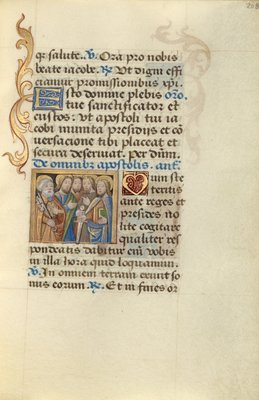 qr salute. V. Ora pro nobis
beate iacobe. R. Ut digni effi
ciamur promissionibus xpi. oro.
Esto domine plebis
tue sanctificator et
custos: ut apostoli tui ia
cobi munita presidiis et cō
versacione tibi placeat et
secura deserviat. Per dūm.
De omnibꝫ apostolis. anᵃ.
Dum ste
teritis
ante reges et
presides no
lite cogitare
qualiter res
pondeatis dabitur eīm vobis
in illa hora quid loquamini.
V. In omnem terram exivit so
nus eorum. R. Et in fines or